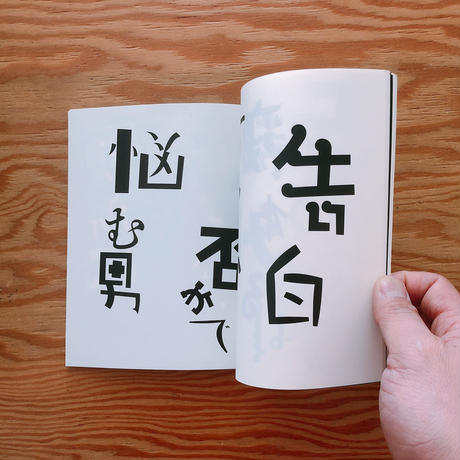 告白
否かで
悩む男